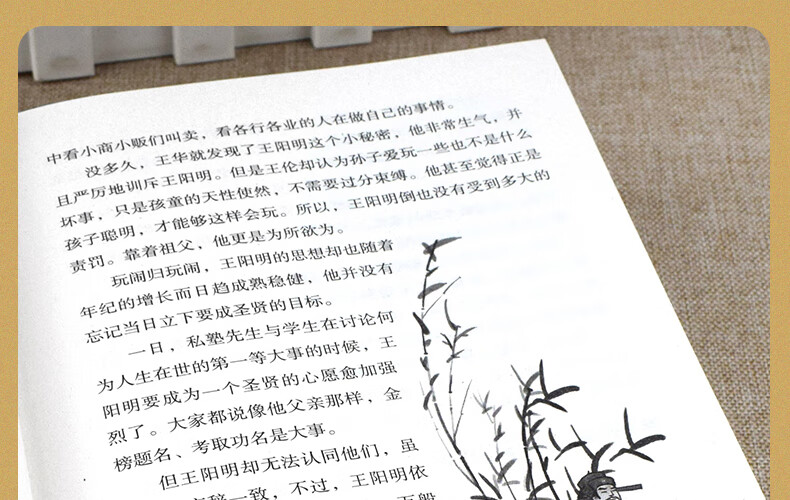 中看小商小贩们叫卖，看各行各业的人在做自己的事情。
没多久，王华就发现了王阳明这个小秘密，他非常生气，并
且严厉地训斥王阳明。但是王伦却认为孙子爱玩一些也不是什么
坏事，只是孩童的天性使然，不需要过分束缚。他甚至觉得正是
孩子聪明，才能够这样会玩。所以，王阳明倒也没有受到多大的
责罚。靠着祖父，他更是为所欲为。
玩闹归玩闹，王阳明的思想却也随着
年纪的增长而日趋成熟稳健，他并没有
忘记当日立下要成圣贤的目标。
一日，私塾先生与学生在讨论何
为人生在世的第一等大事的时候，王
阳明要成为一个圣贤的心愿愈加强
烈了。大家都说像他父亲那样，金
榜题名、考取功名是大事。
但王阳明却无法认同他们，虽
辞一致，不过，王阳明依